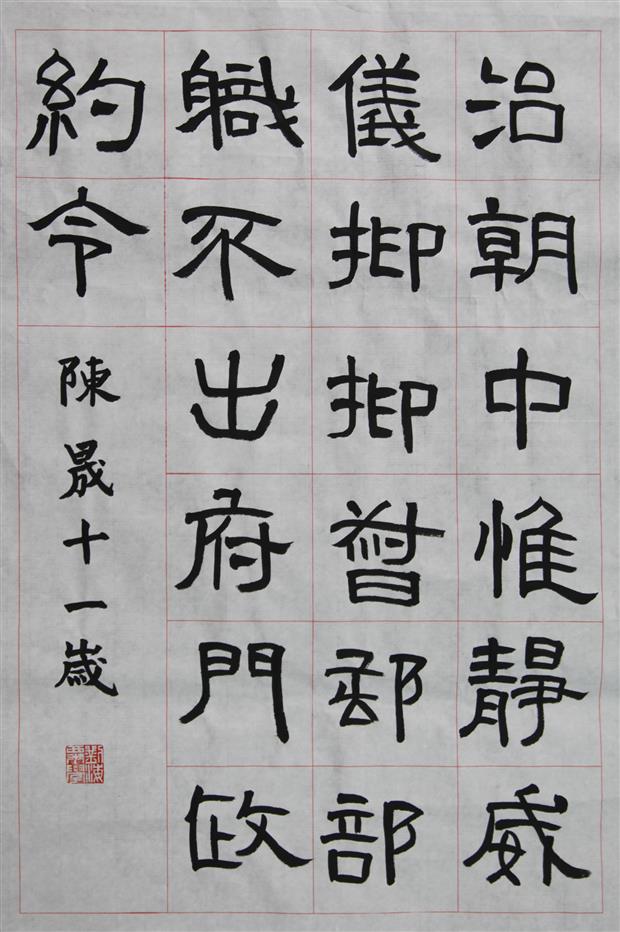 治朝中惟靜威
儀抑抑督郵部
職不出府門政
約令
陳晟十一歲